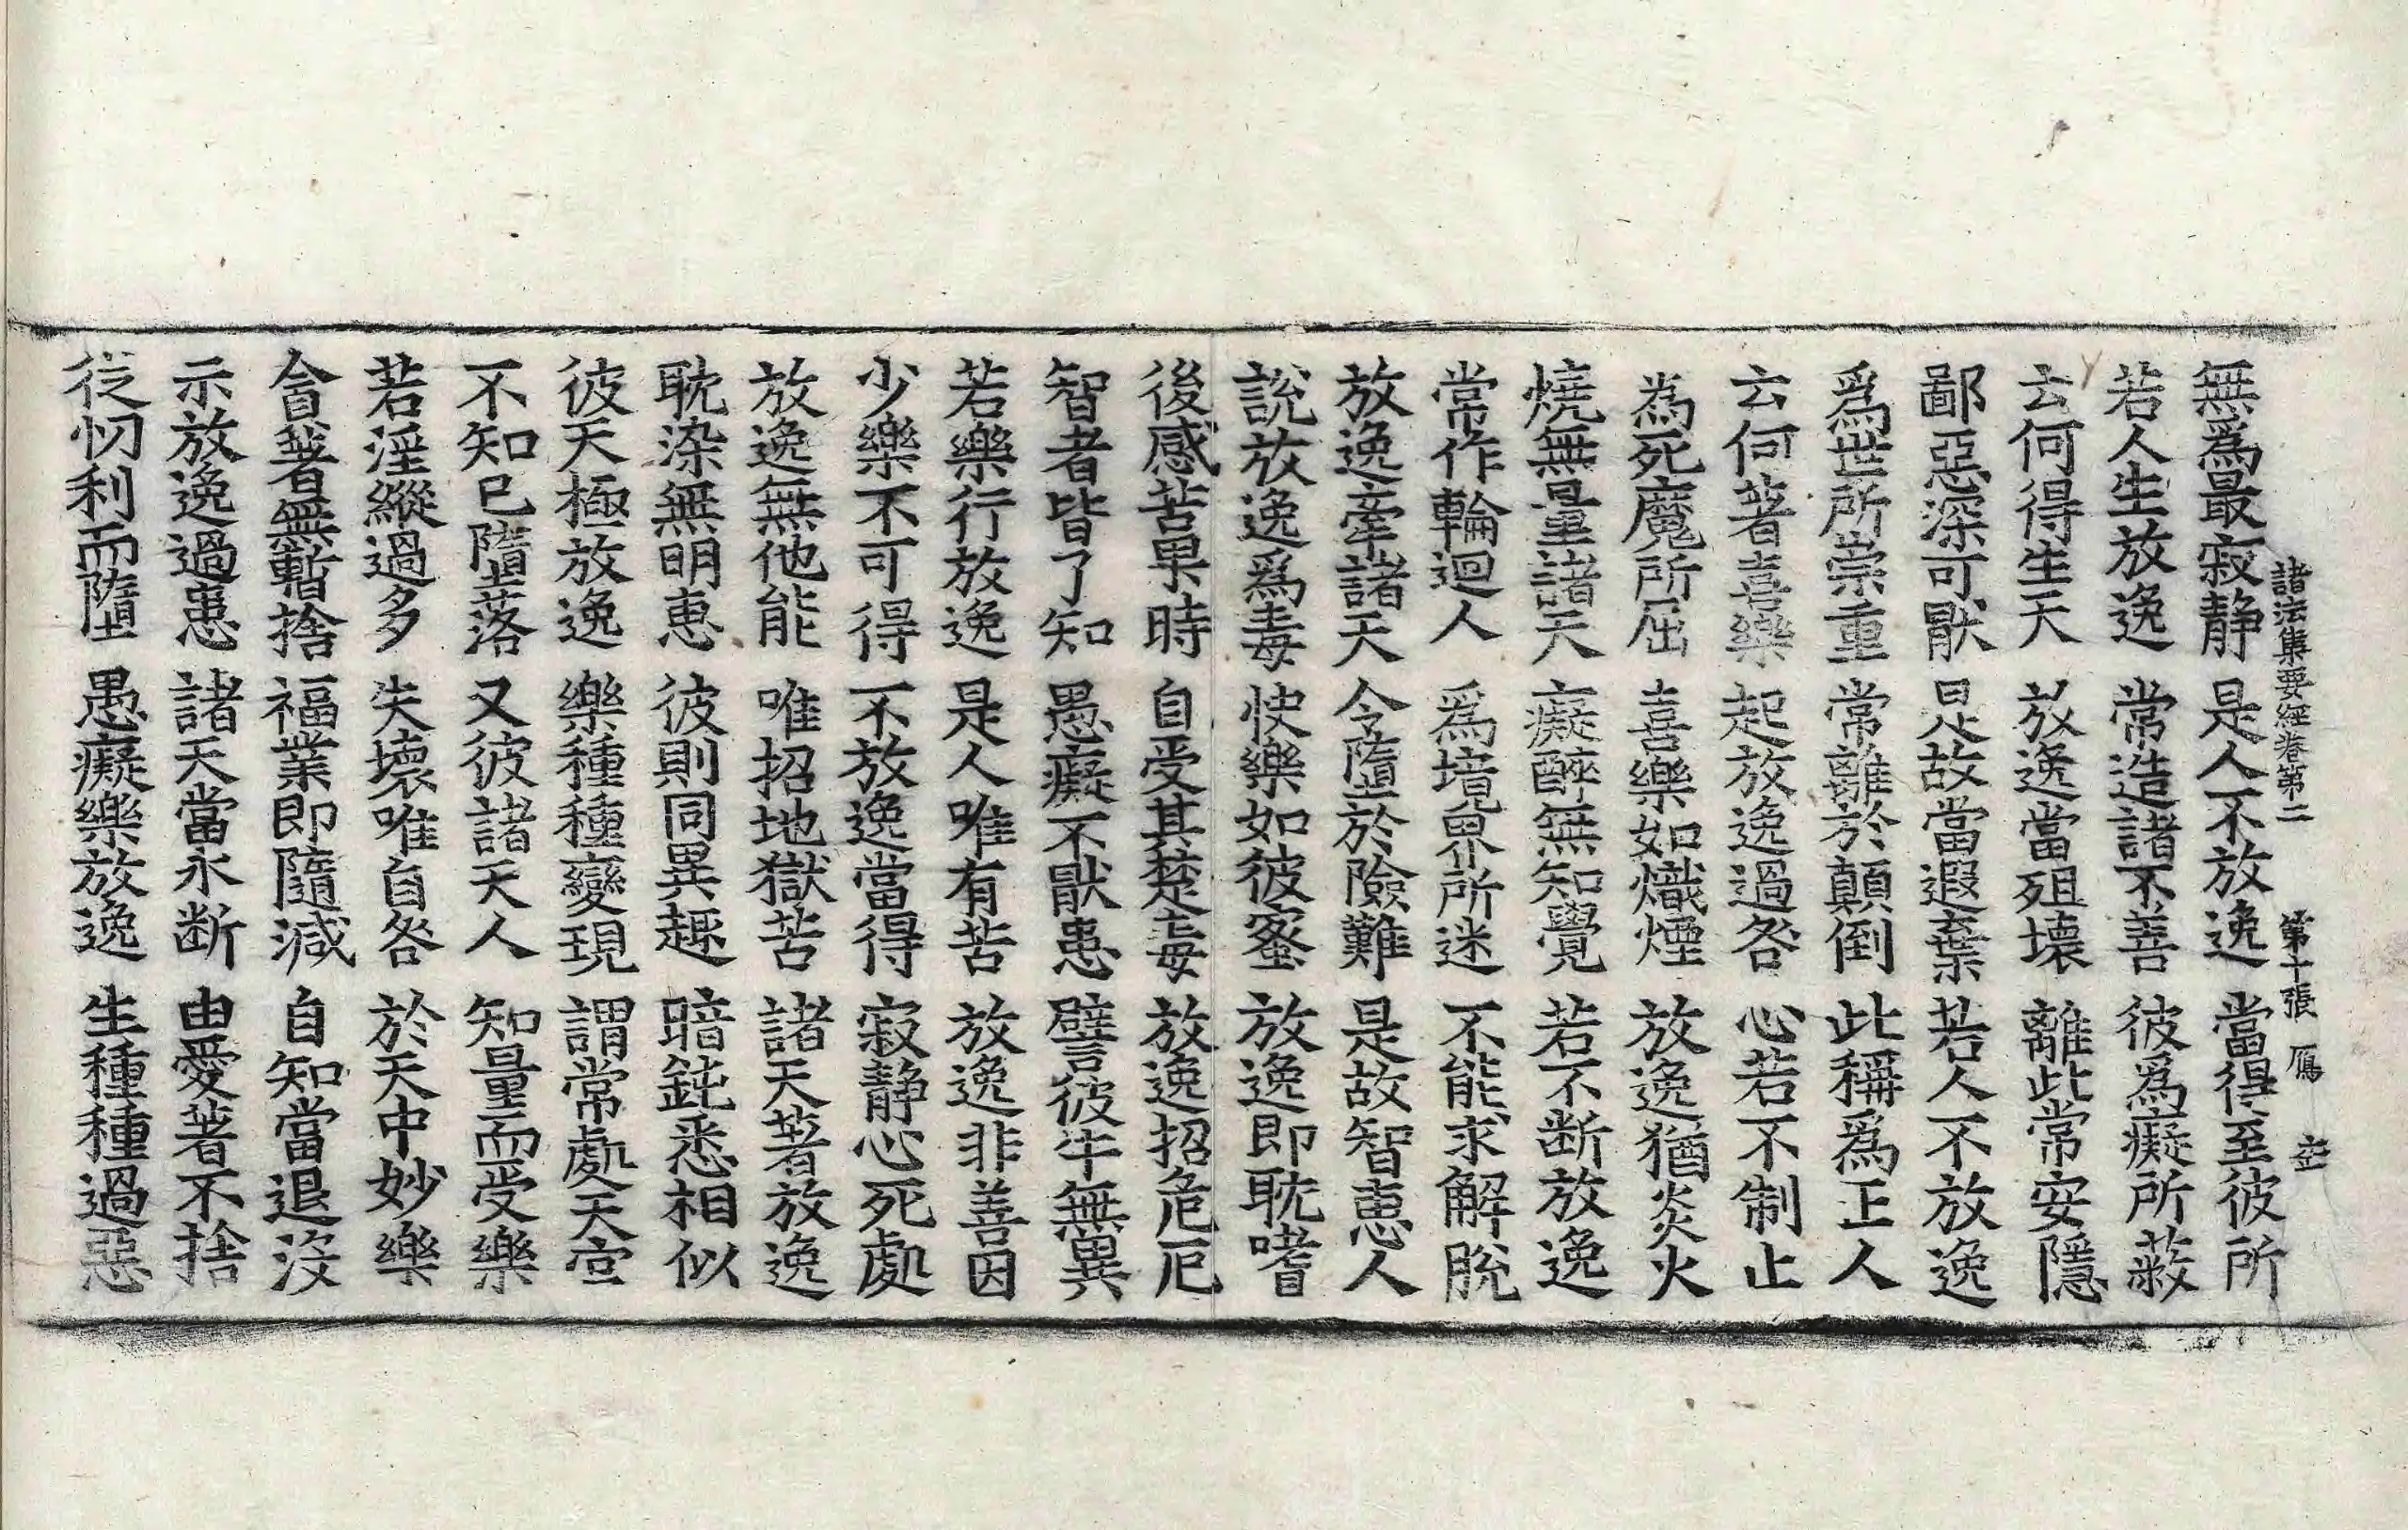 諸法集要經卷第二 第十張 鴈
無爲最寂静 是人不放逸 當得至彼所
若人生放逸 常造諸不善 彼爲癡所蔽
云何得生天 放逸當殂壞 離此常安隱
鄙惡深可猒 是故當遐棄 若人不放逸
爲世所崇重 常離於顛倒 此稱爲正人
云何著喜樂 起放逸過咎 心若不制止
為死魔所屈 喜樂如熾煙 放逸猶炎火
燒無量諸天 癡醉無知覺 若不断放逸
常作輪迴人 爲境界所迷 不能求解脫
放逸牽諸天 令墮於險難 是故智恵人
說放逸爲毒 快樂如彼蜜 放逸即耽嗜
後感苦果時 自受其楚毒 放逸招危厄
智者皆了知 愚癡不猒患 譬彼牛無異
若樂行放逸 是人唯有苦 放逸非善因
少樂不可得 不放逸當得 寂静心死處
放逸無他能 唯招地獄苦 諸天著放逸
耽染無明恵 彼則同異趣 暗鈍悉相似
彼天極放逸 樂種種變現 謂常處天宫
不知已墮落 又彼諸天人 知量而受樂
若淫縱過多 失壞唯自咎 於天中妙樂
貪著無暫捨 福業即隨減 自知當退沒
示放逸過患 諸天當永断 由愛著不捨
從忉利而墮 愚癡樂放逸 生種種過惡